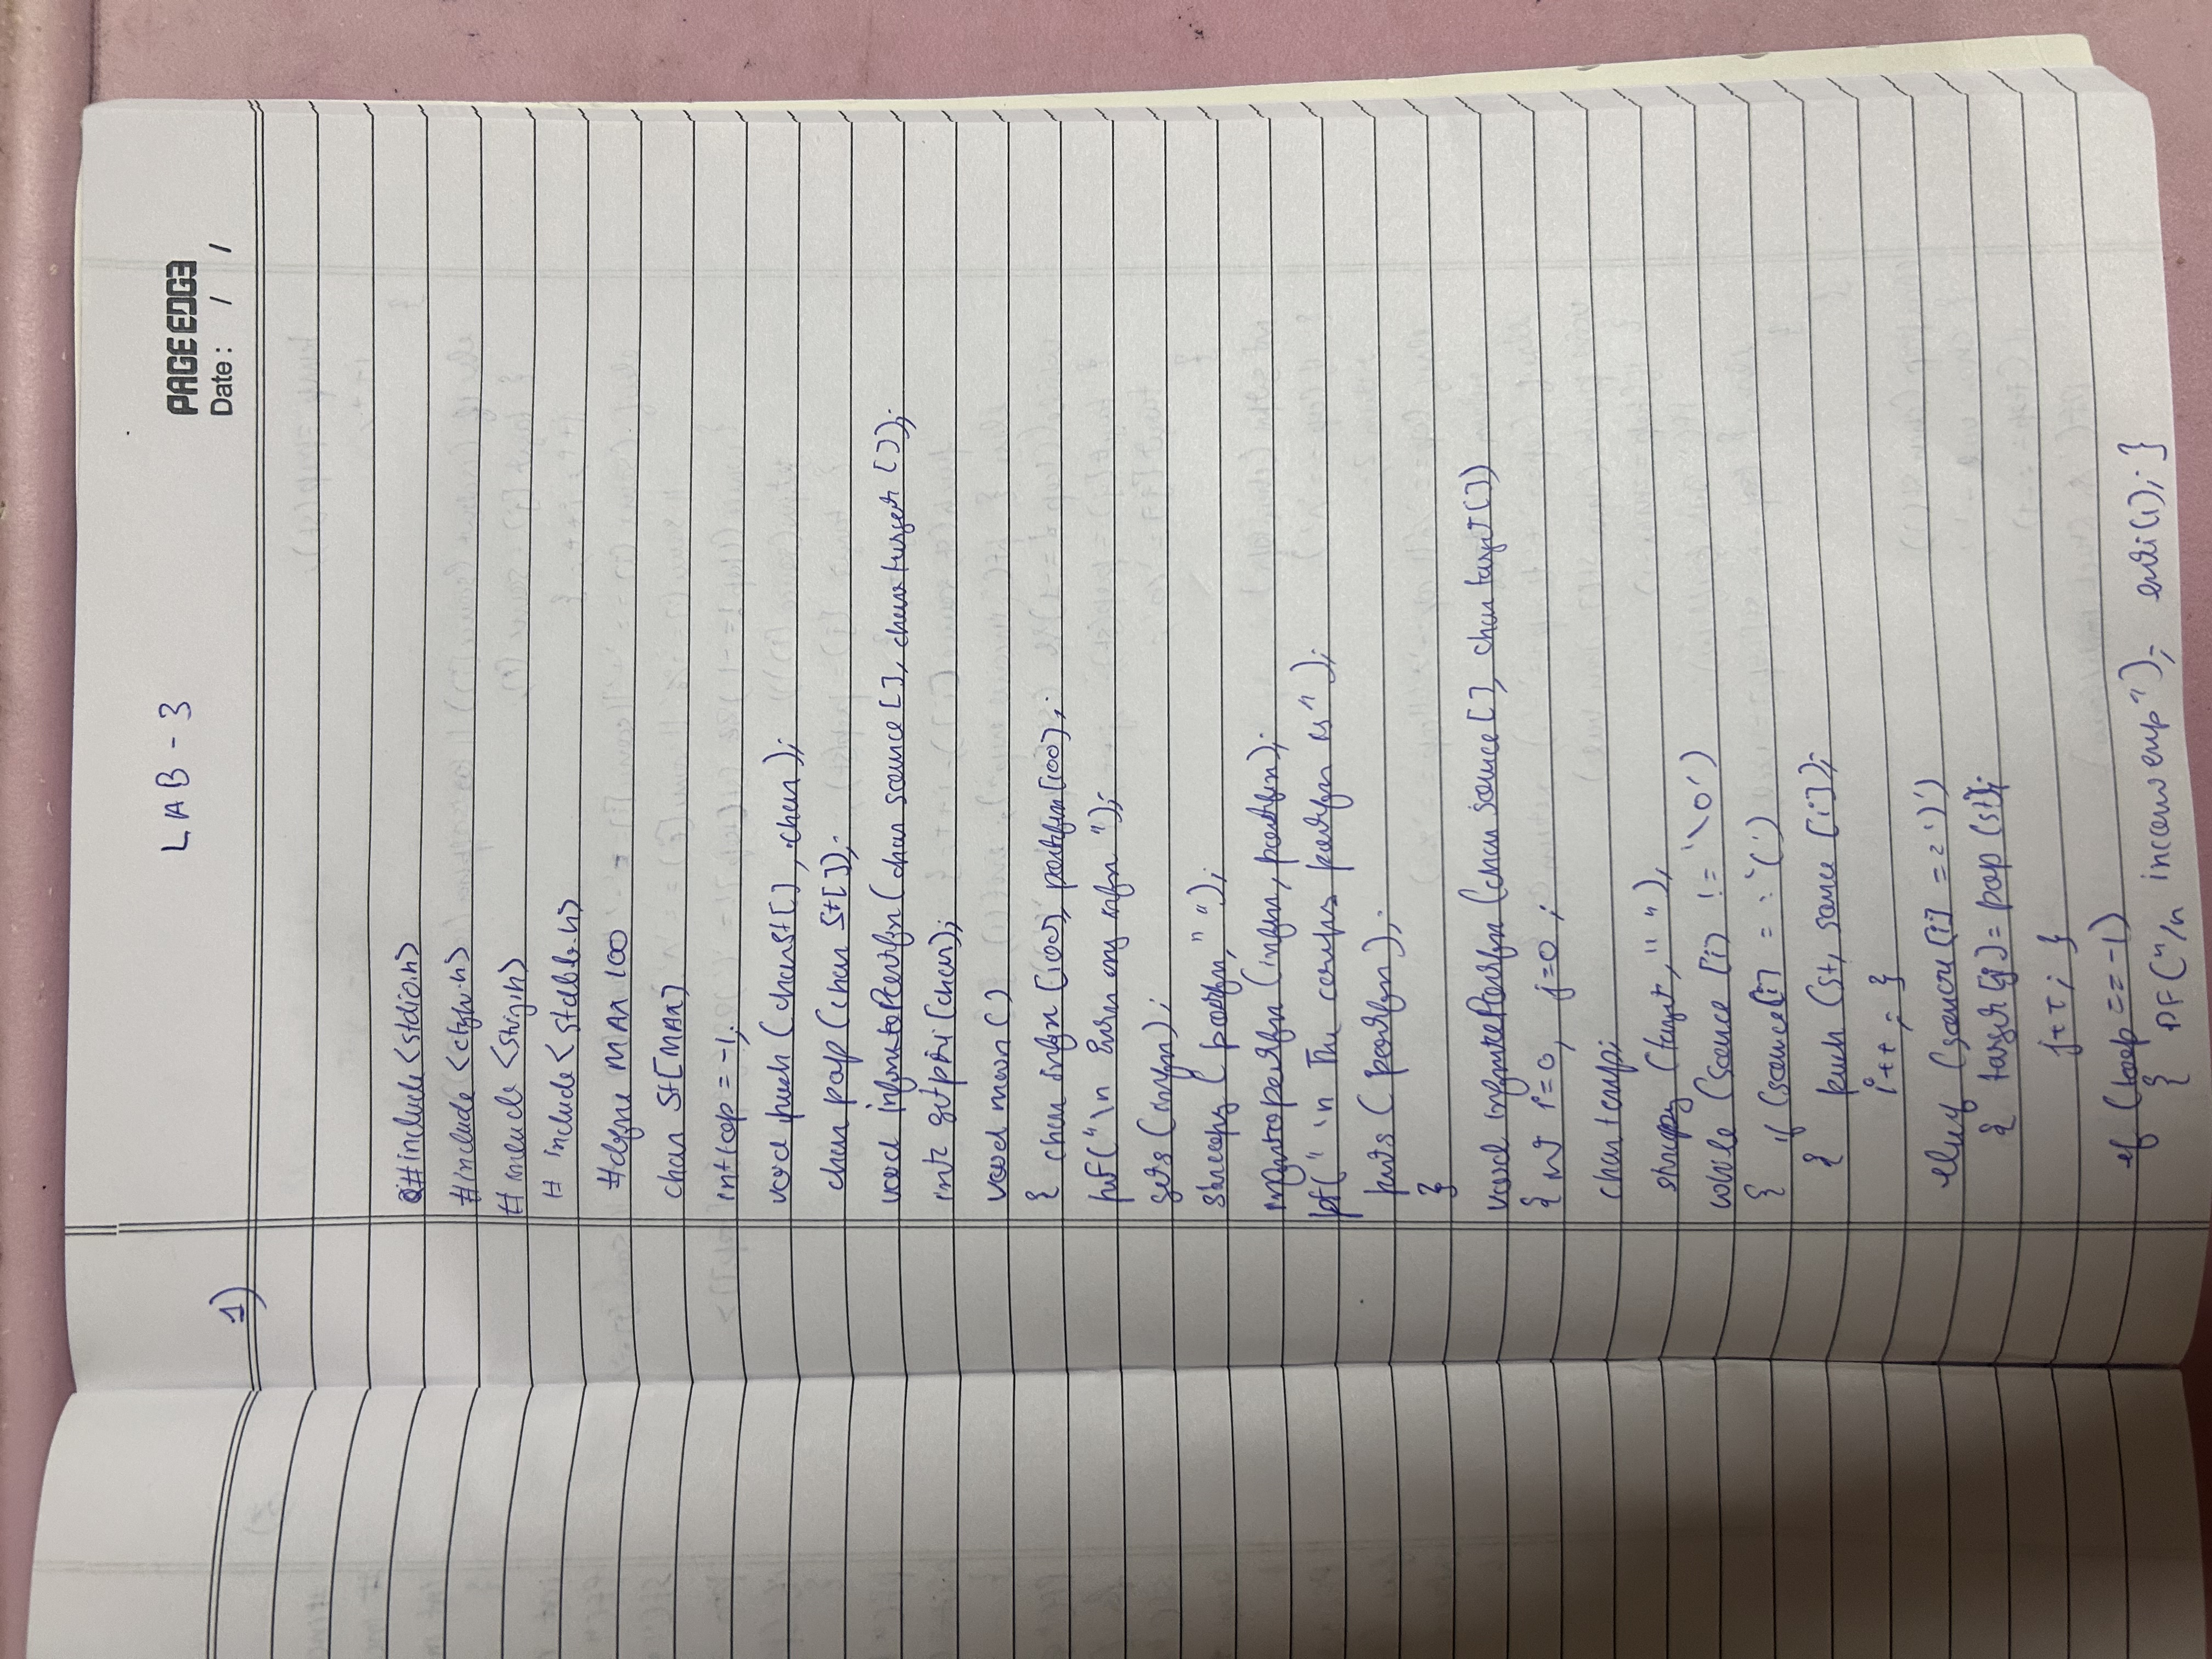 LAB - 3
PAGE EDGE
Date : / /
1)
#include <stdio.h>
#include <ctype.h>
# include <string.h>
# include <stdlib.h>
#define MAX 100
char St[MAX]
int top = -1;
void push (char st[], char);
char pop (char St[]);
void infixtoPostfix (char source [], char target []);
int getpri (char);
void main ()
{ char infix [100], postfix [100];
pf("\n Enter any infix ");
gets (infix);
strcpy ( postfix, " ");
infixtopostfix (infix, postfix);
pf(" \n The postfix is" );
puts ( postfix );
}
void infixtoPostfix (char source [], char target [])
{ int i=0, j=0 ;
char temp;
strcpy (target, " ");
while (source [i] != '\0')
{ if (source[i] == '(')
{ push (st, source [i]);
i++ ; }
else if (source [i] == ')')
{ target [j] = pop (st);
j++ ; }
if (top == -1)
{ PF("/n "); (1); }